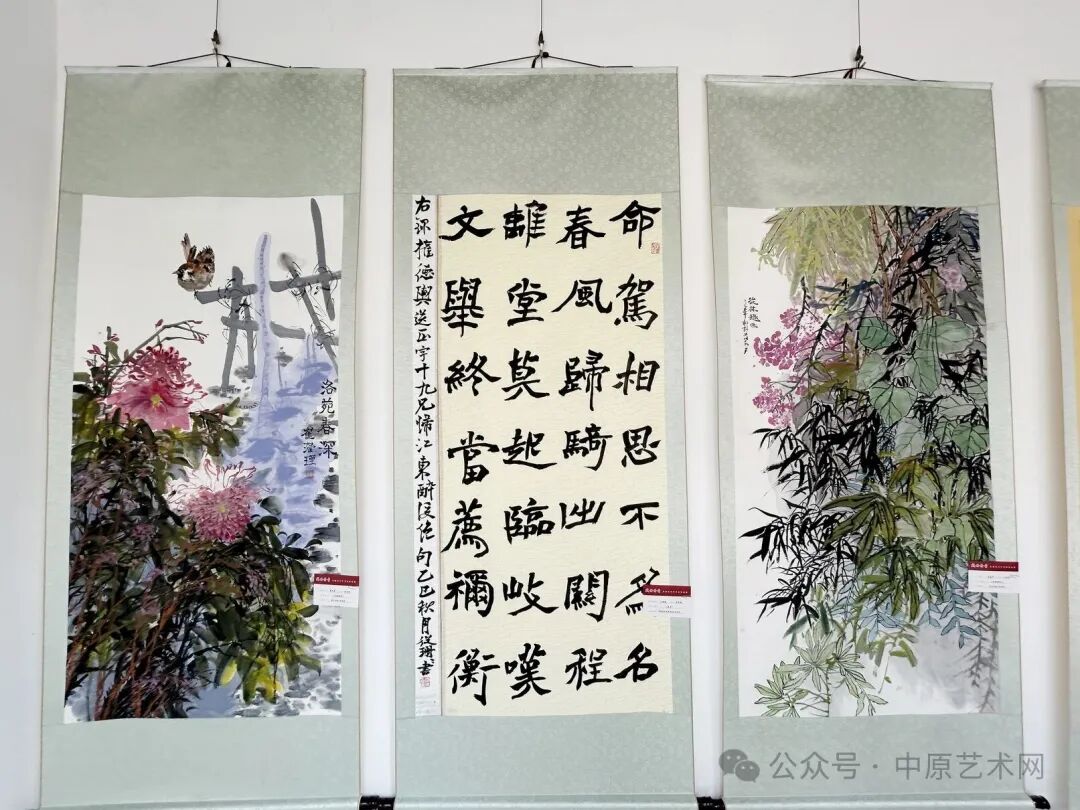 洛苑春深
命駕相思不為名
春風歸騎出關程
離堂莫起臨岐嘆
文舉終當薦禰衡
右錄權德輿送正字十九兄歸江東醉後絕句乙巳秋月書
公众号·中原艺术网